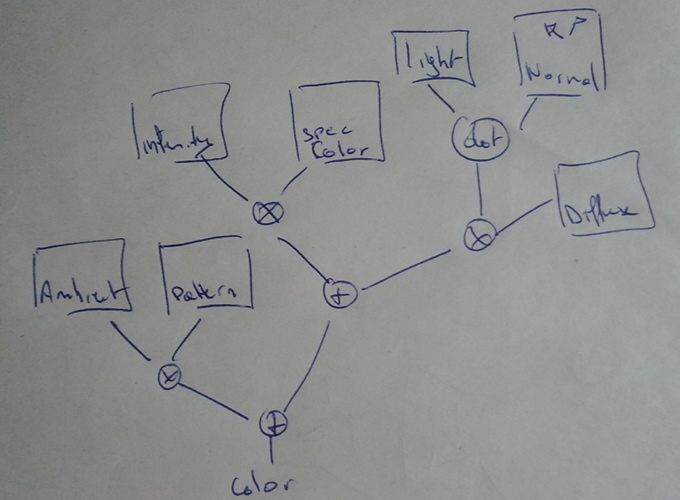 Light
Normal
dot
Intensity
Spec
Color
×
×
Diffuse
Ambient
Pattern
+
×
+
Color